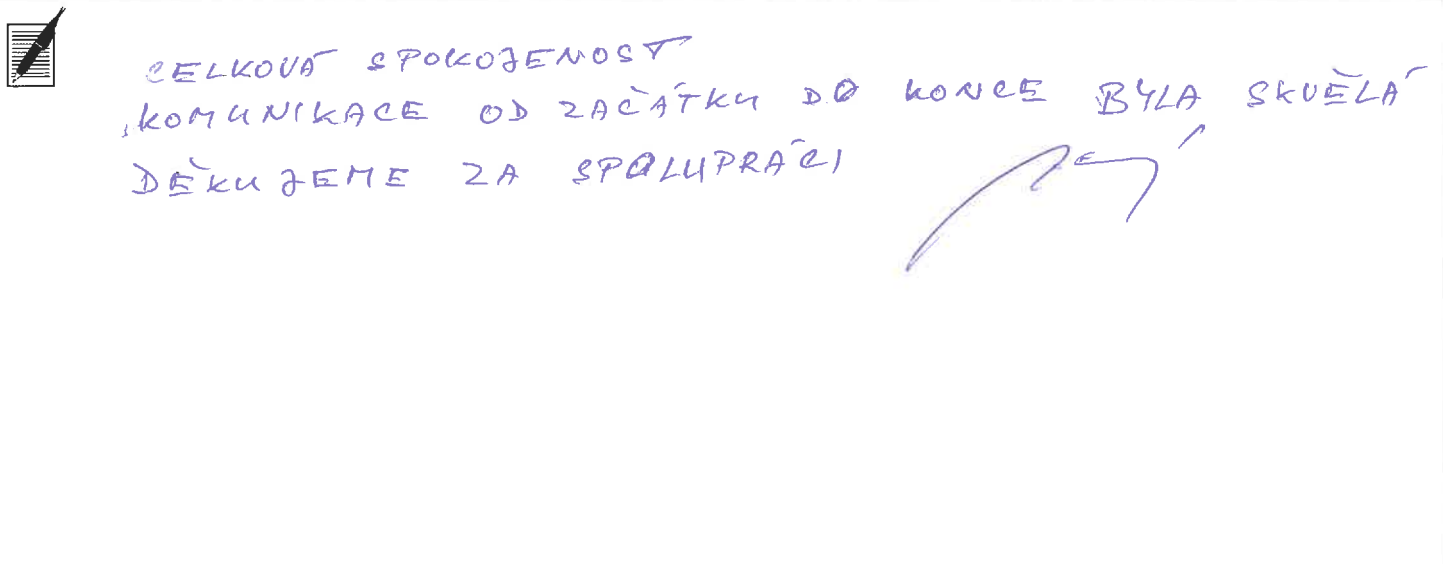 CELKOVÁ SPOKOJENOST
KOMUNIKACE OD ZAČÁTKU DO KONCE BYLA SKVĚLÁ
DĚKUJEME ZA SPOLUPRÁCI